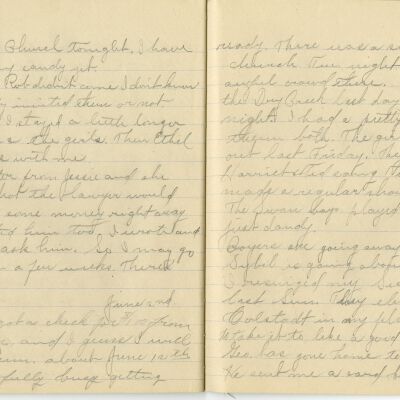 Church tonight. I have
candy yet.
Rob didn't come I don't know
invited them or not
I stayed a little longer
the girls. Then Ethel
with me.
from Jessie and she
that the lawyer would
some money right away
I wrote and
ask him. So I may go
a few weeks. There's
June 2nd.
got a check for from
and I guess I will
about June 12th
busy getting
ready. There was a s
church Tue. night
awful crowd there.
the Dry Creek last day
night. I had a pretty
them both. The gi
out last Friday. The
Harriet
made a regular sho
The Swan boys played
just dandy.
Boyers are going away
Isabel is going
I resigned my
last Sun. They ele
Oalstadt in my pla
take it to like a good
Geo. has gone home to
He sent me a card